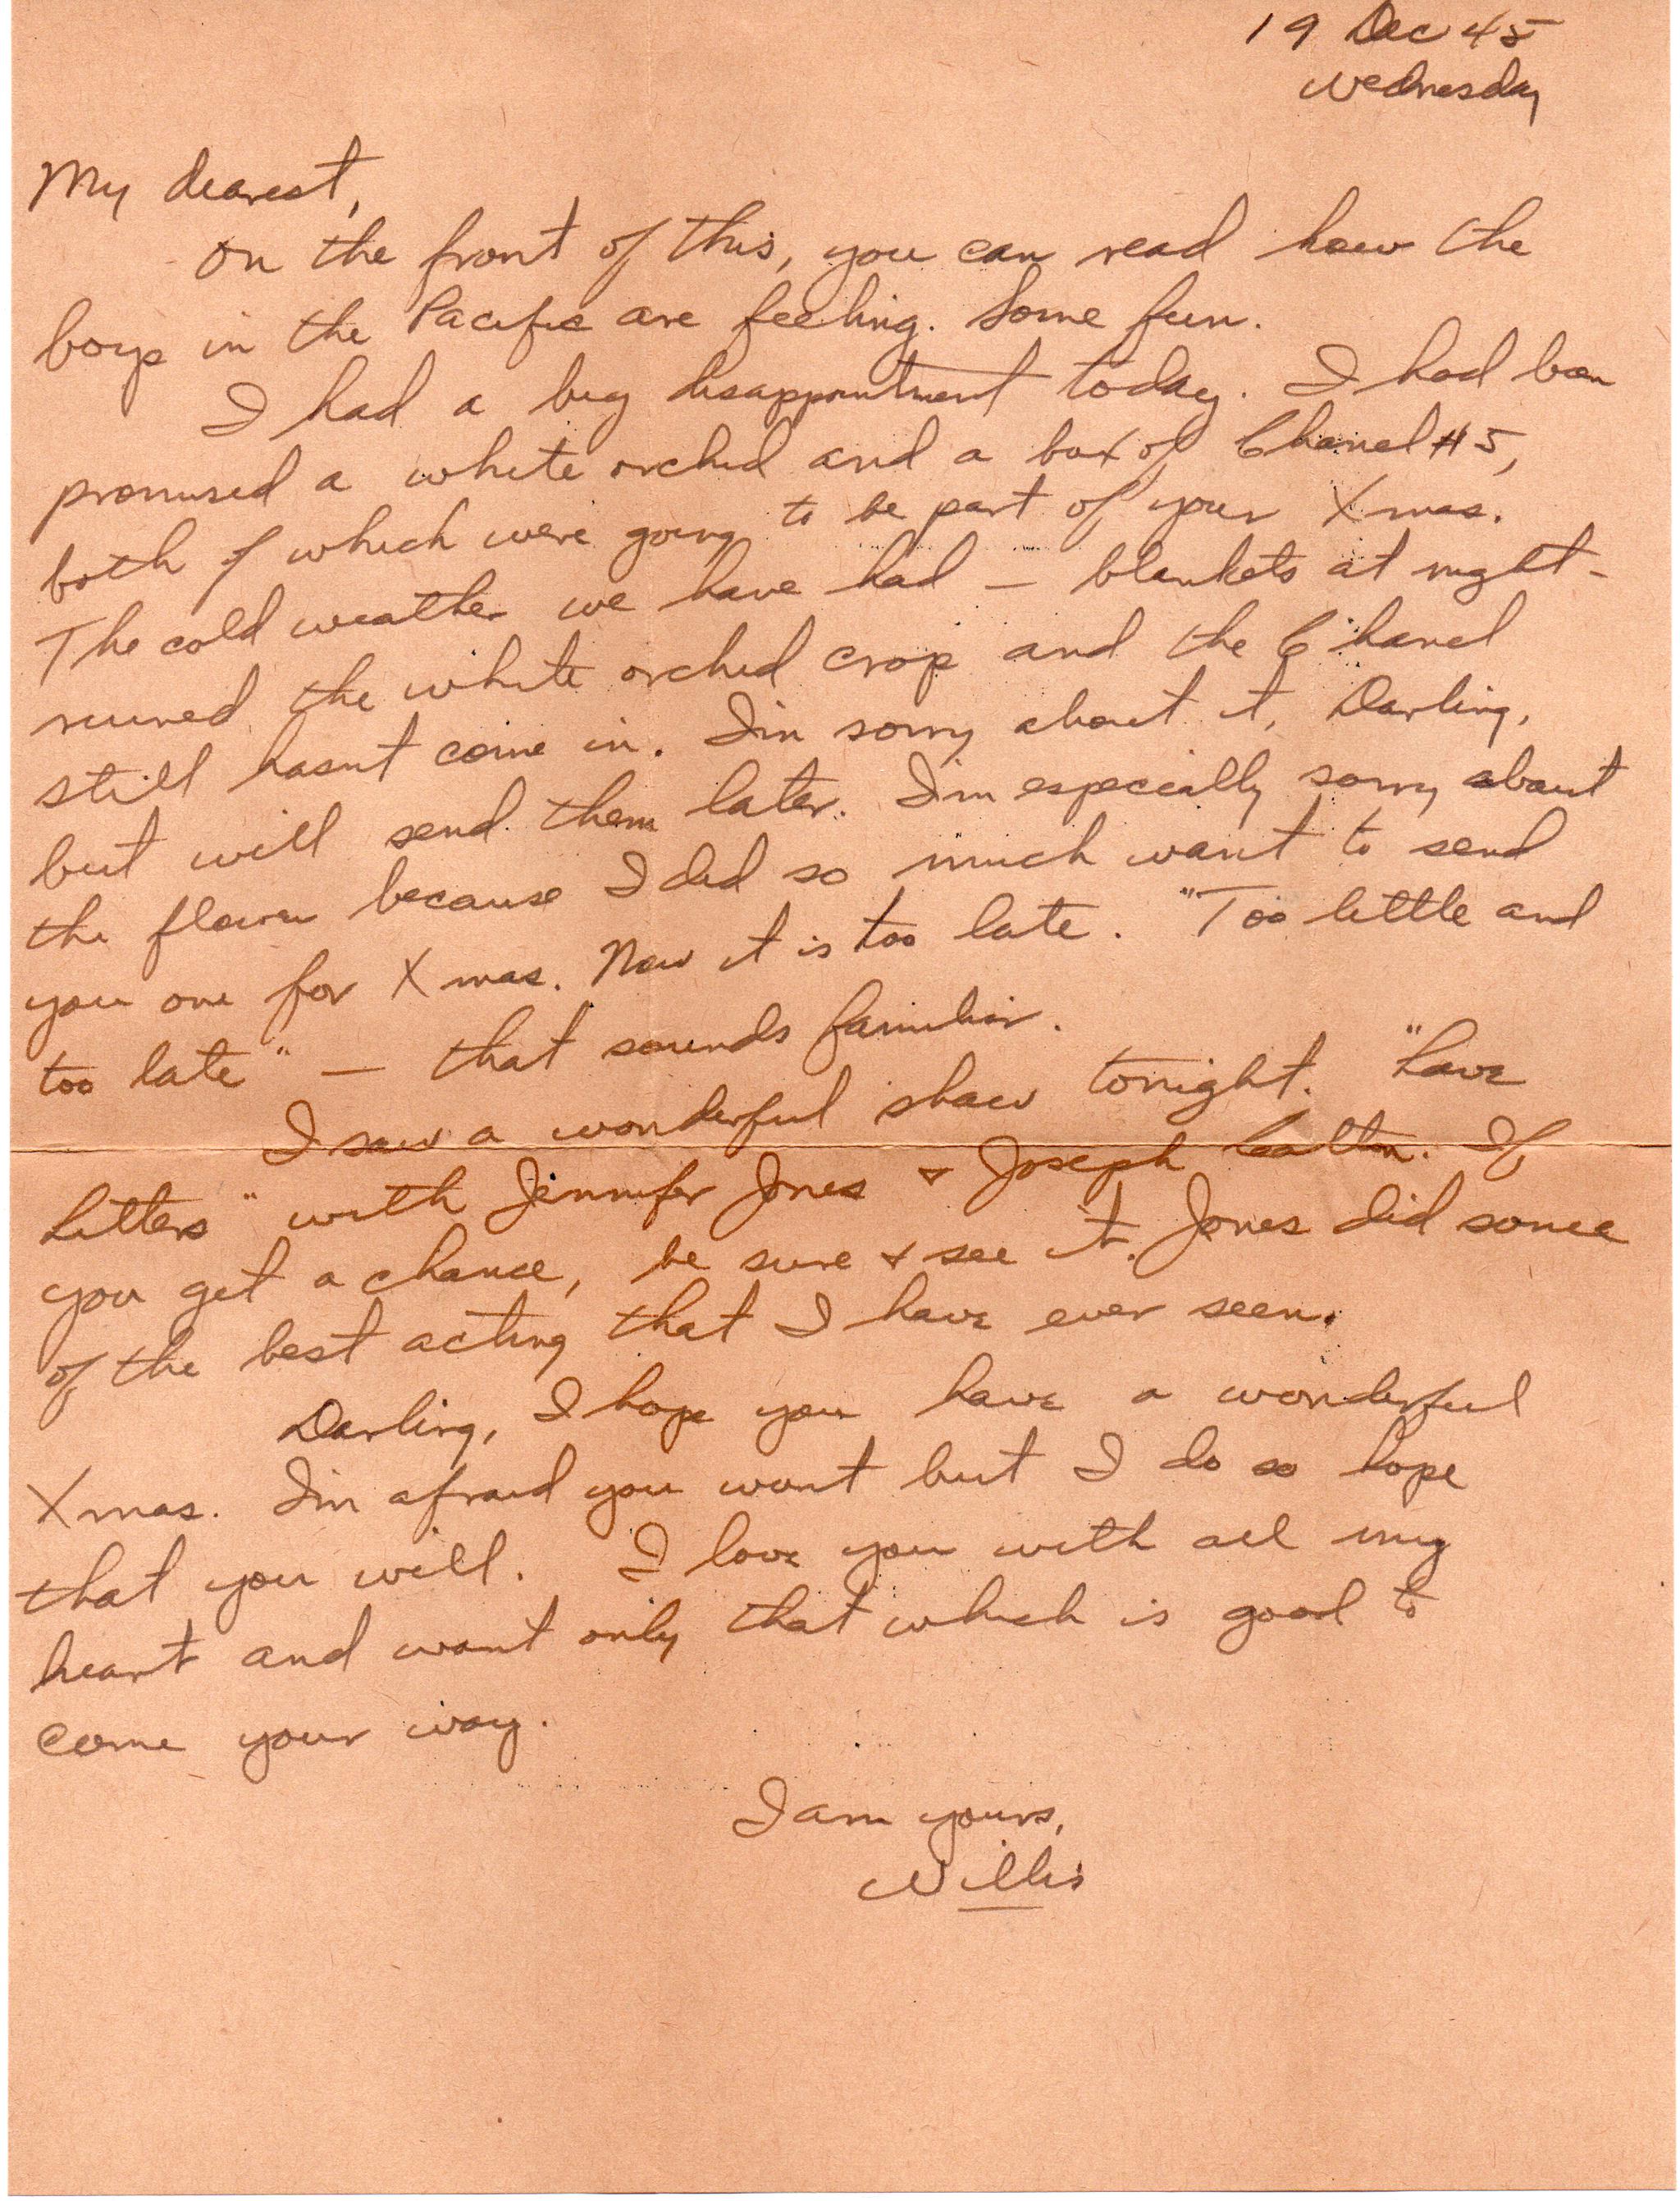 19 Dec 45
Wednesday
My dearest,
On the front of this, you can read how the
boys in the Pacific are feeling. Some fun.
I had a big disappointment today. I had been
promised a white orchid and a box of Chanel #5,
both of which were going to be part of your Xmas.
The cold weather we have had — blankets at night -
ruined the white orchid crop and the Chanel
still hasnt come in. I'm sorry about it, Darling,
but will send them later. I'm especially sorry about
the flower because I did so much want to send
you one for Xmas. Now it is too late. "Too little and
too late" — that sounds familiar.
I saw a wonderful show tonight. "Love
Letters" with Jennifer Jones & Joseph Cotton. If
you get a chance, be sure & see it. Jones did some
of the best acting that I have ever seen.
Darling, I hope you have a wonderful
Xmas. I'm afraid you wont but I do so hope
that you will. I love you with all my
heart and want only that which is good to
come your way.
I am yours,
Willis